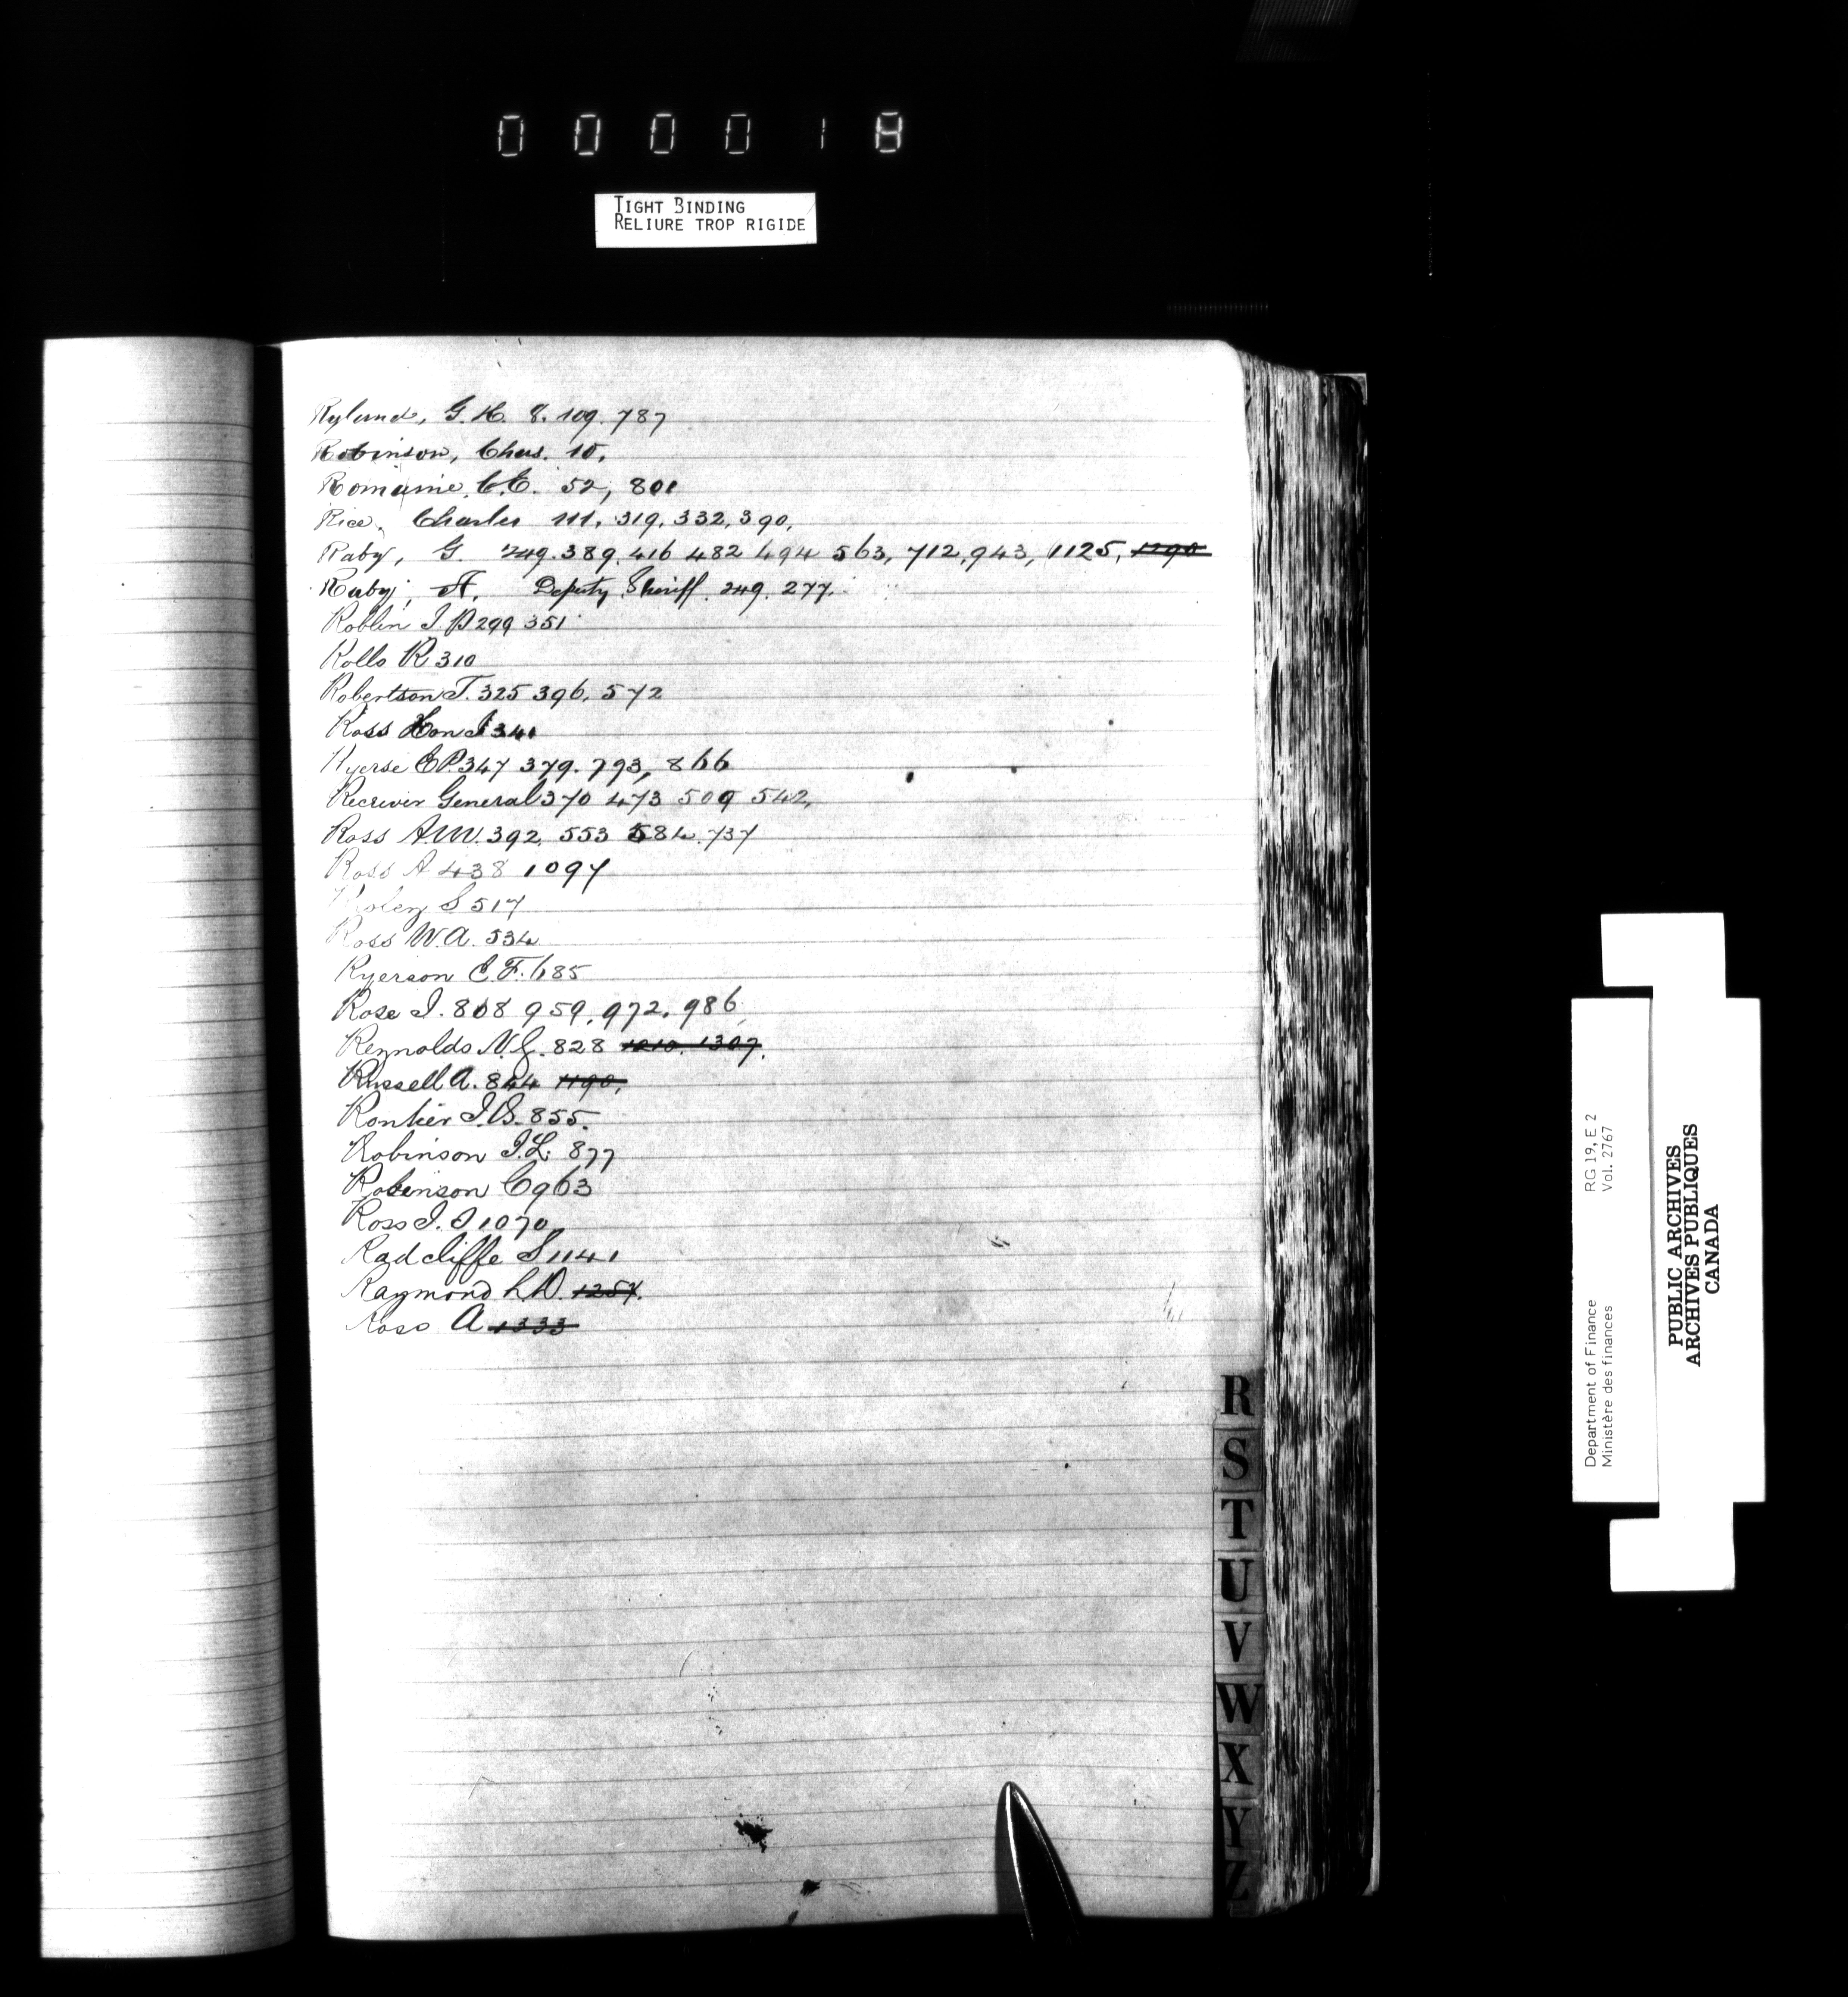 000018
TIGHT BINDING
RELIURE TROP RIGIDE
Ryland, G. H. 8. 109. 787
Robinson, Chas. 10.
Romaine, C.E. 52, 801
Rice, Charles 111, 319, 332, 390,
Raby, G. 249. 389. 416 482 494 563, 712, 943, 1125, 1290
Raby, A. Deputy Sheriff. 249. 277.
Roblin J. P 299 351
Rollo R 310
Robertson T. 325 396, 572
Ross Hon J 341
Ryerse E P. 347 379. 793, 866
Receiver General 370 473 509 542,
Ross A.M. 392, 553 584. 737
Ross A 438 1097
S 517
Ross W. A. 534
Ryerson E. F. 685
Rose J. 808 959, 972, 986,
Reynolds N. G. 828 1210. 1307.
Russell A. 844 1190,
Rontier J. B. 855.
Robinson J. L. 877
Robinson C 963
Ross J. J 1070,
Radcliffe S 1141
Raymond L. D. 1257.
Ross A 1333
R
S
T
U
V
W
X
Y
Z
Department of Finance RG 19, E 2
Ministère des finances Vol. 2767
PUBLIC ARCHIVES
ARCHIVES PUBLIQUES
CANADA